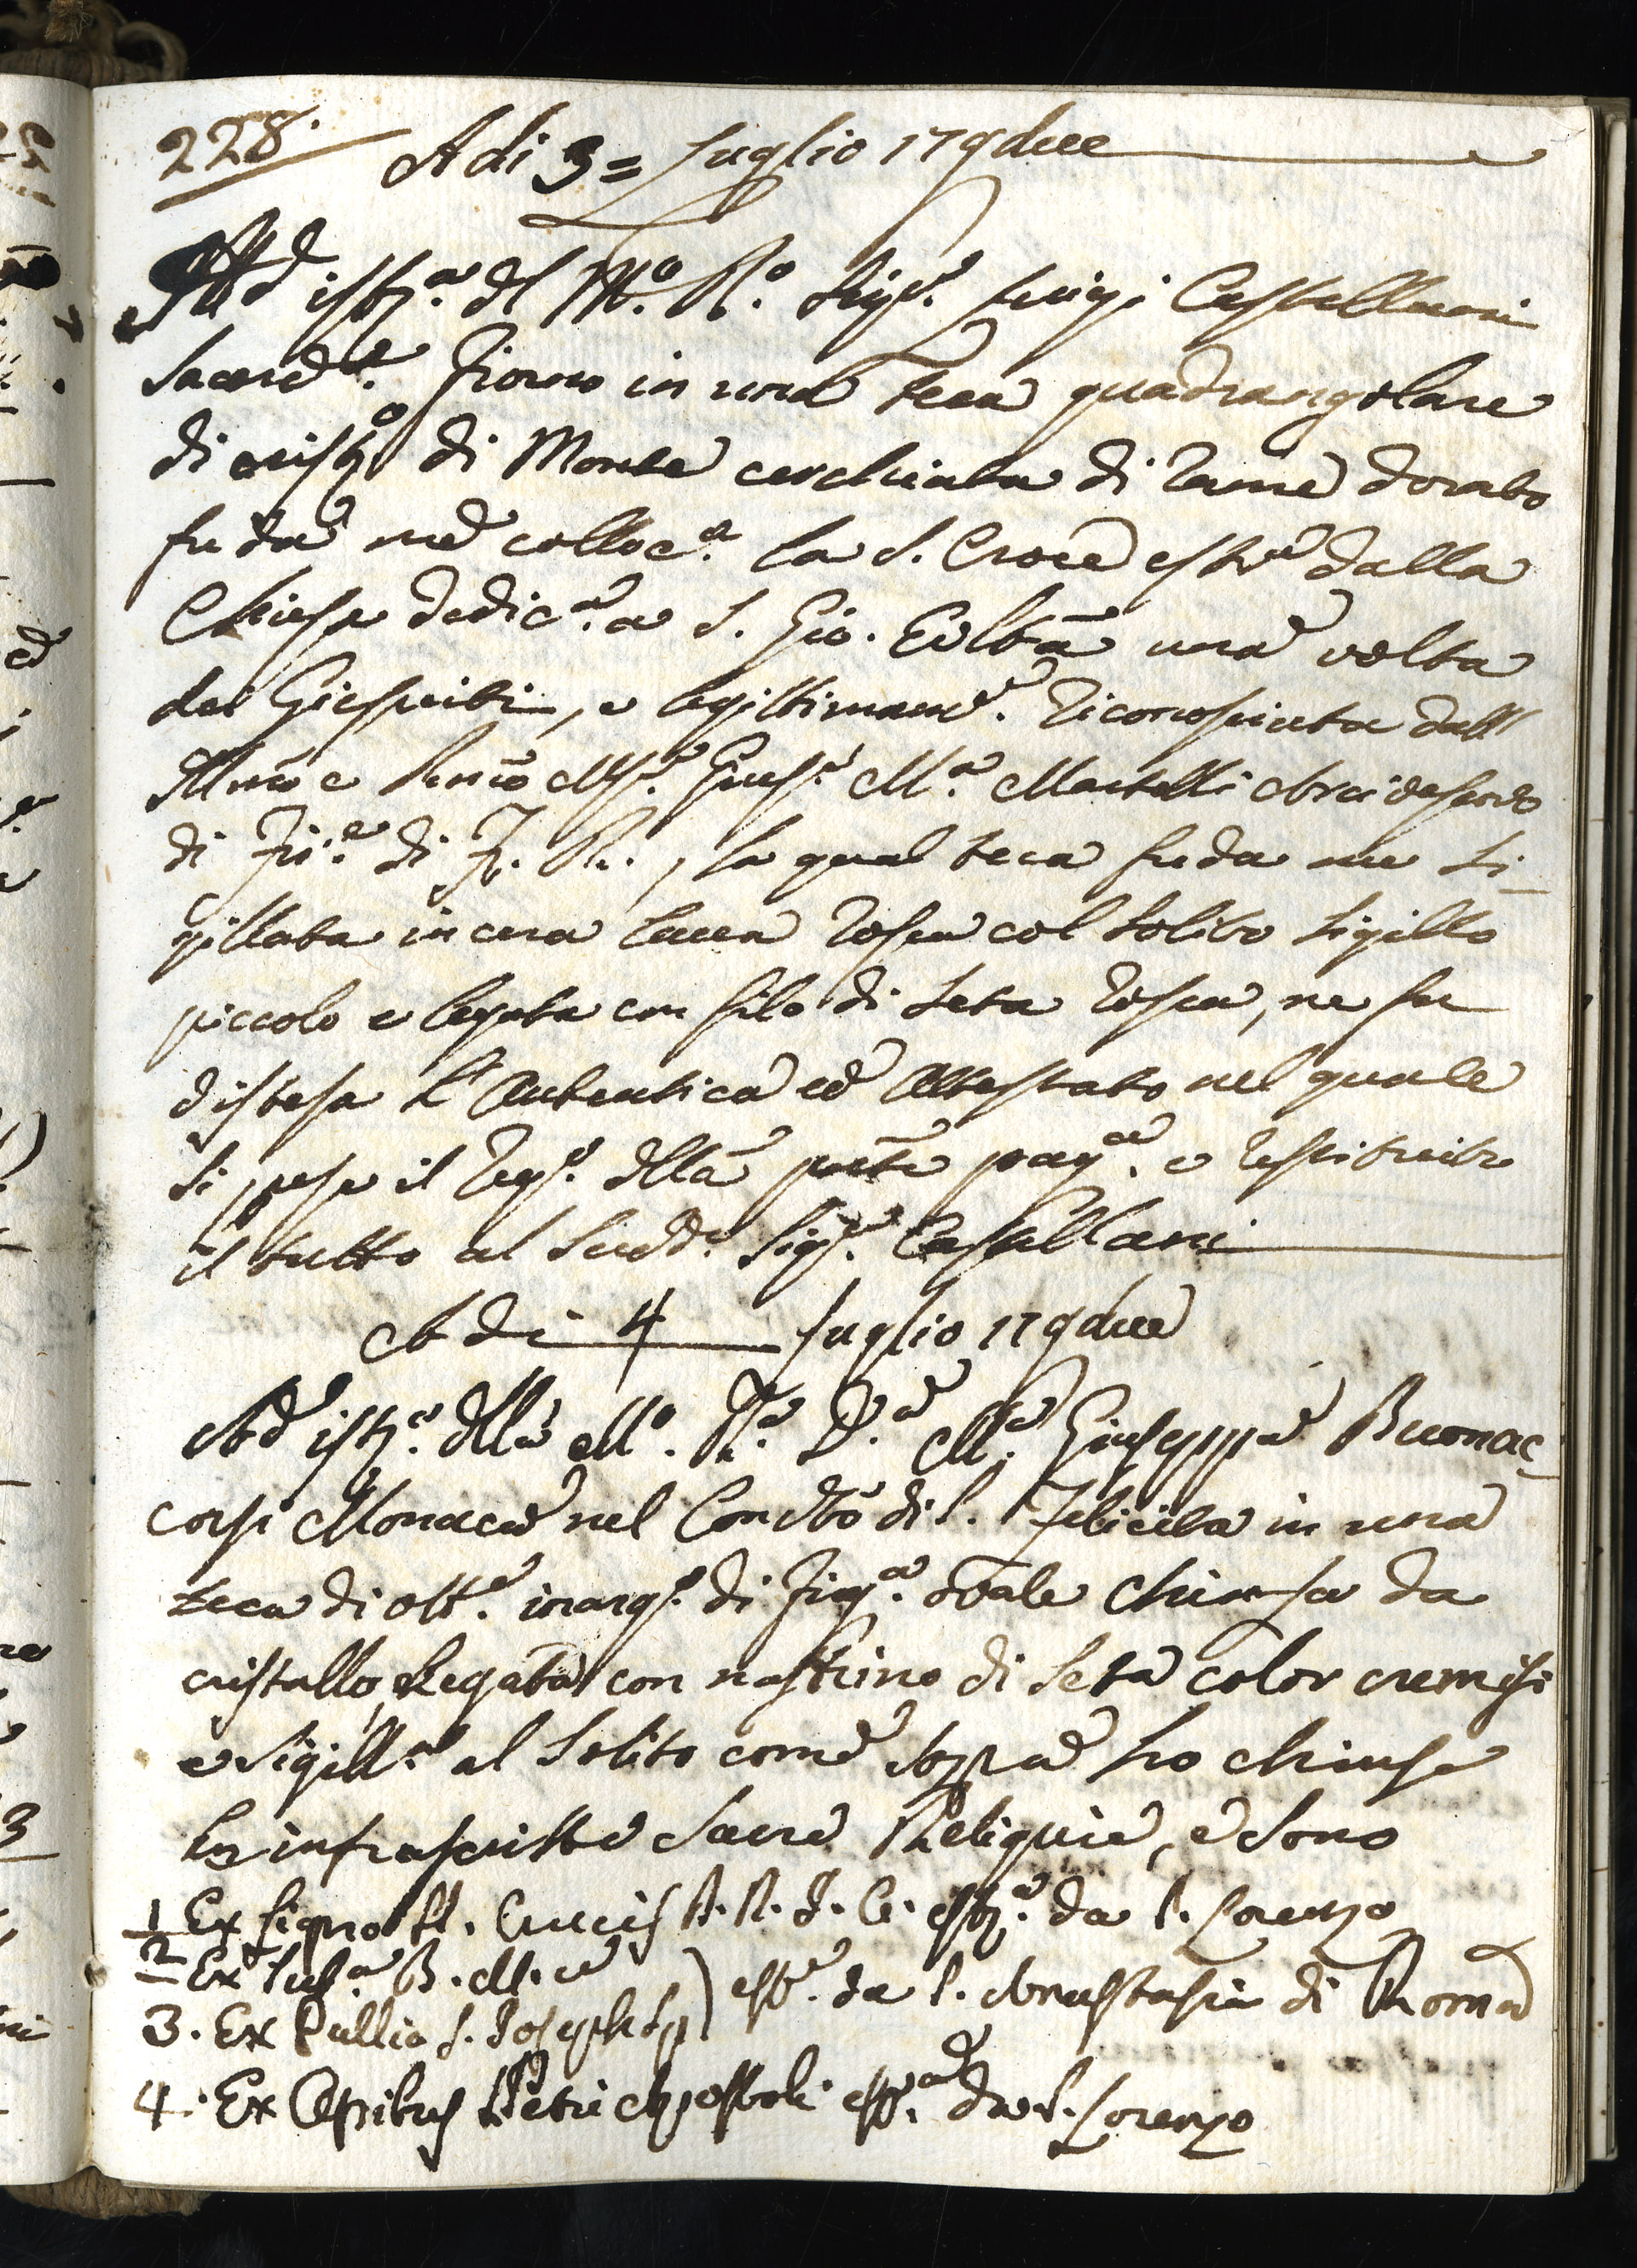 228.
Adi 3= Luglio 179due
Ad istz.ᵃ dl M.º R.º Sigr.ᵉ Luigi Castellani
Sacerd.ᵗᵉ Fiorno in una teca quadrangolare
di cristº di Monte cerchiata di rame dorato
fu da me colloc.ᵃ la S. Croce estrᵃ dalla
Chiesa dedic.ᵃ a S. Gio. Evltã una volta
dei Giesuiti, e legittimamẽ. riconosciuta dall'
Illmõ e Revmõ Msr.ᵉ Giusp.ᵉ M.ᵃ Martelli Arcivescovo
di Fir.ᵉ di F. R., la qual teca fu da me si-
gillata in cera lacca rossa col solito sigillo
piccolo e legata con filo di seta rossa, ne fu
distesa l'Autentica ed Attestato nel quale
si pose il regº. dllã prẽte pag.ᵃ e restituito
il tutto al sudd.º Sigr.ᵉ Castellani
Adi 4 Luglio 179due
Ad istz.ᵃ dllã M.º R.ᵃ D.ᵃ M.ᵃ Giuseppa Buonac-
corsi Monaca nel Convtõ di S. Felicita in una
teca di ott.ᵉ inargº. di fig.ᵃ ovale chiusa da
cristallo, legata con nastrino di seta color cremisi
e sigill.ᵃ al solito come sopra ho chiuse
le infrascritte Sacre Reliquie, e sono
1 Ex Ligno SS. Crucis D. N. J. C. estr.ᵃ da S. Lorenzo
2 Ex B. M. V.
3. Ex Pallio S. Joseph Sp) estr.ᵉ da S. Anastasia di Roma
4. Ex S. Petri Apostoli estr.ᵃ da S. Lorenzo